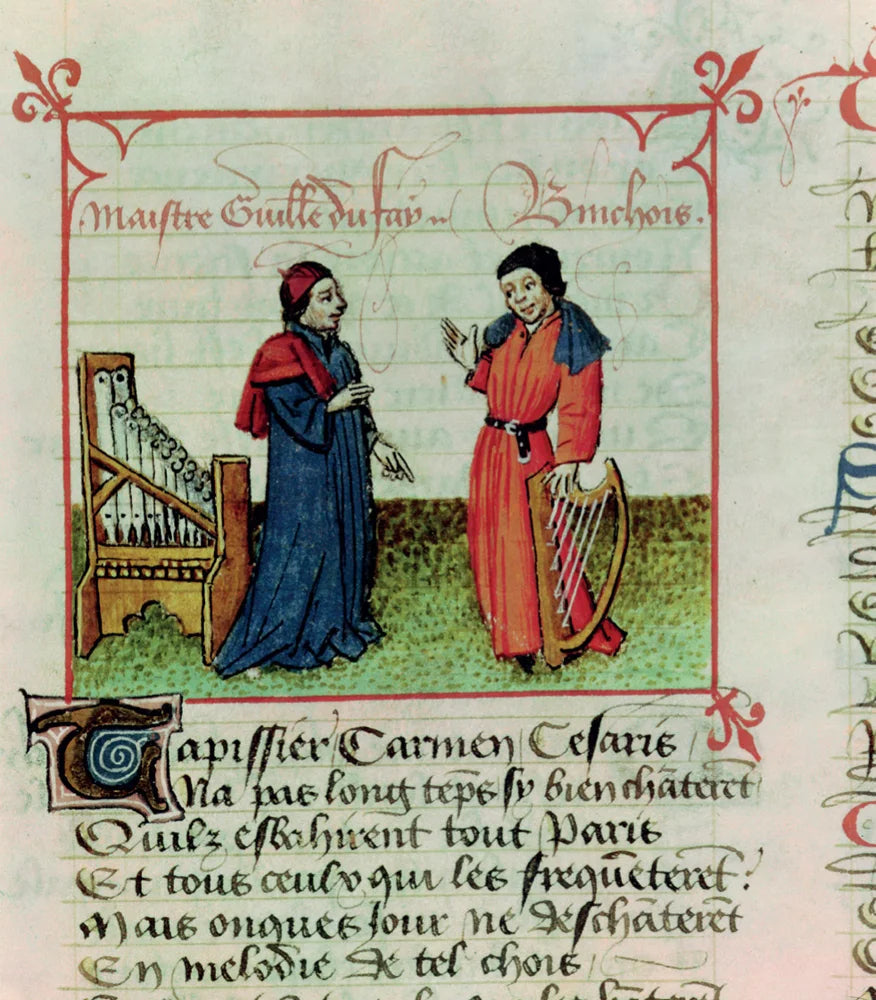 Maistre Guille du fay Binchois.
Tapissier Carmen Cesaris
Na pas long tēps sy bien chāterēt
Quilz esbahirent tout Paris
Et tous ceulx qui les frequēterēt:
Mais onques jour ne deschāterēt
En melodie de tel chois